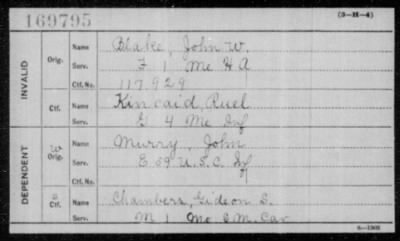 169795
(3-H-4)
INVALID
Orig.
Name Blake, John W.
Serv. F 1 Me H A
Ctf. No. 117929
Ctf.
Name Kincaid, Ruel
Serv. G 4 Me Inf
DEPENDENT
W
Orig.
Name Murry, John
Serv. E 59 U.S.C. Inf
Ctf. No.
Ctf.
Name Chambers, Gideon S.
Serv. M 1 Mo. S. M. Cav
6—1308